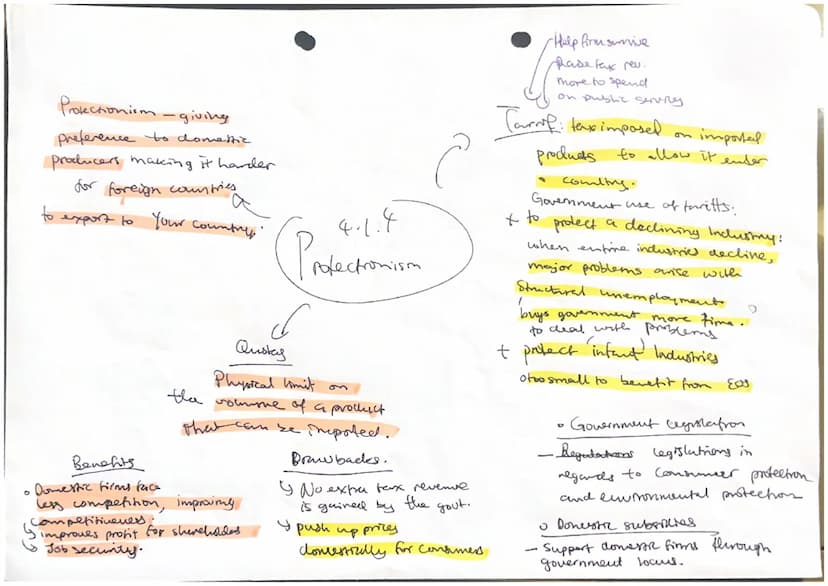 4.1.4
Protectionism
Protectionism - giving
preference to domestic
producers making it harder
for foreign countries
to export to your country.
Help firm survive
Raise tax rev.
more to spend
on public services
Tarrif: tax imposed on imported
products to allow it enter
country.
Government use of tariffs:
+ to protect a declining Industry:
when entire industries decline,
major problems arise with
structural unemployment
buys government more time.
to deal with problems
+ protect (infant) Industries
too small to benefit from EOS
Quotas
Physical limit on
the volume of a product
that can be imported.
Benefits
Domestic firms face
less competition, improving
competitiveness.
improves profit for shareholders
Job security.
Drawbacks.
No extra tax revenue
is gained by the govt.
push up prices
domestically for consumers
Government legislation
- Regulations legislations in
regards to consumer protection
and environmental protection
Domestic subsidies
- Support domestic firms through
government